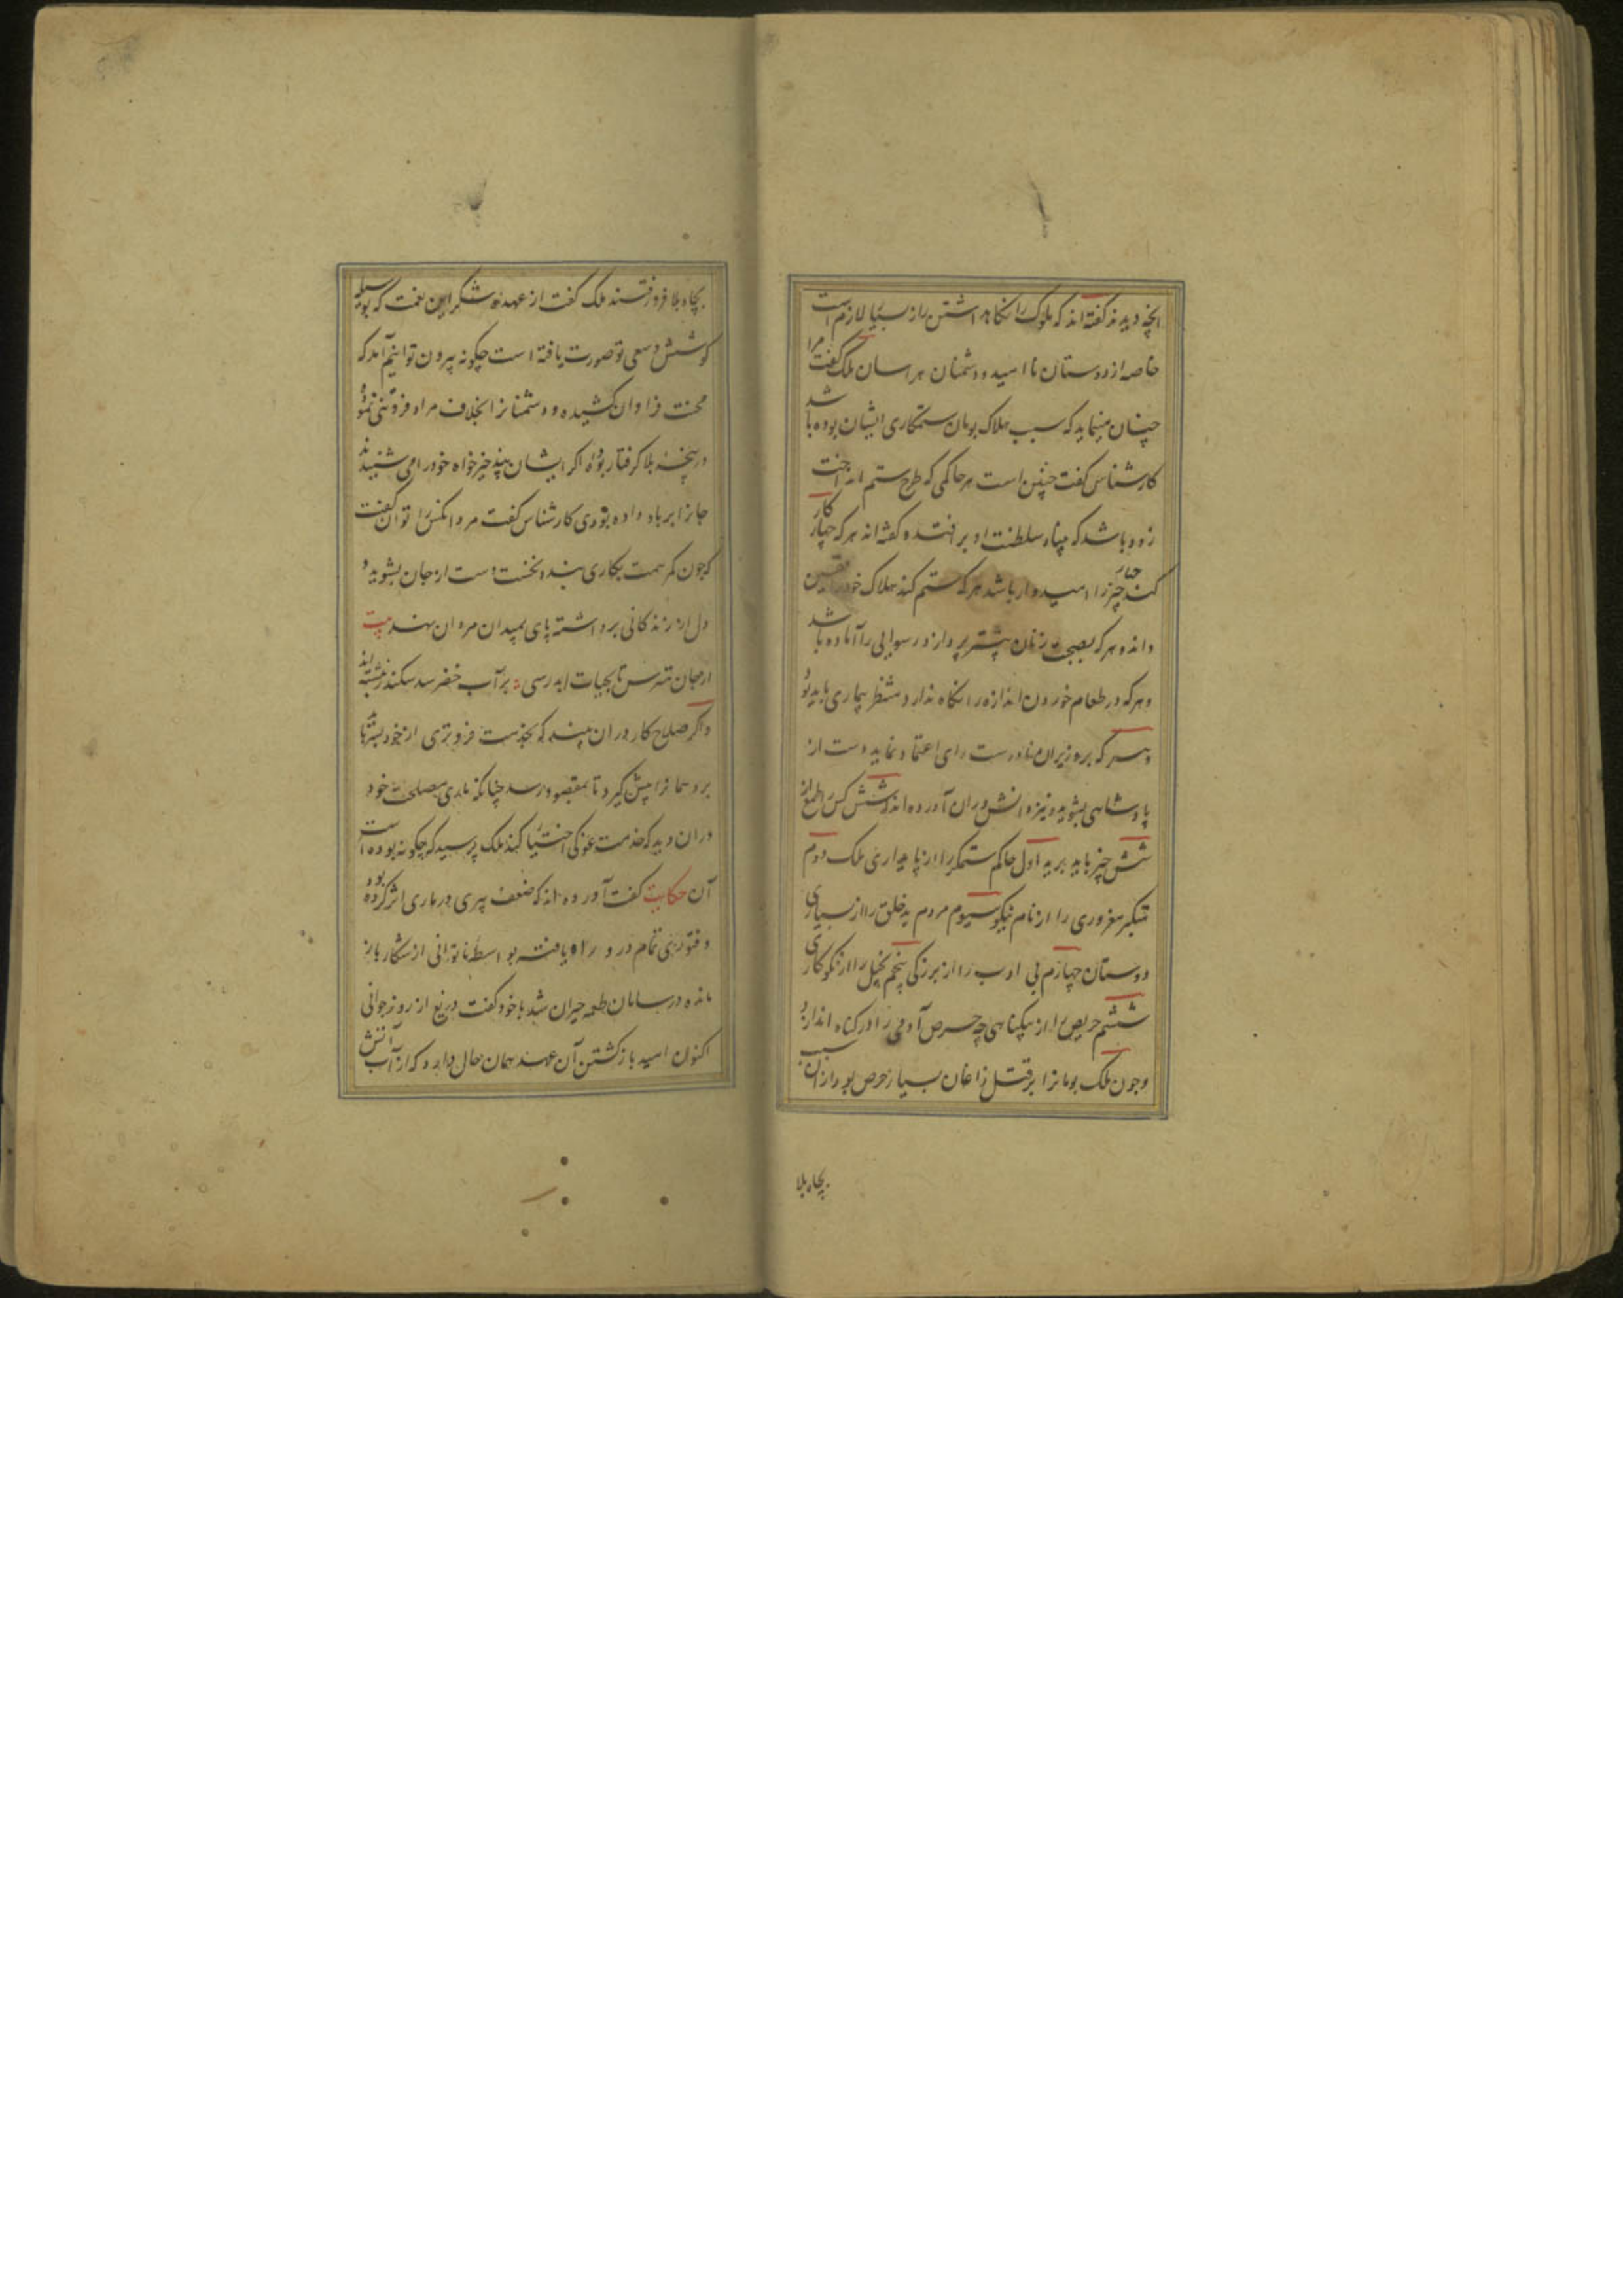 انچه دیدند گفته اند که ملوک را نگاهداشتن راز بسیار لازم است
خاصه از دوستان نا امید و دشمنان هراسان ملک گفت مرا
چنان مینماید که سبب هلاک بومان ستمکاری ایشان بوده باشد
کارشناس گفت چنین است هر حاکمی که طرح ستم انداخت
زود باشد که بنیاد سلطنت او بر افتد و گفته اند هر که چهار کار
کند چهار چیز را امیدوار باشد هر که ستم کند هلاک خود را یقین
داند و هر که بصحبت زنان بیشتر پردازد رسوایی را آماده باشد
و هر که در طعام خوردن اندازه را نگاه ندارد منتظر بیماری باید بود
و هر که بر وزیران نادرست رای اعتماد نماید دست از
پادشاهی بشوید و نیز دانشوران آورده اند که شش کس را طمع از
شش چیز باید برید اول حاکم ستمگر را از پایداری ملک دوم
متکبر مغروری را از نام نیکو سیوم مردم بد خلق را از بسیاری
دوستان چهارم بی ادب را از بزرگی پنجم بخیل را از نکوکاری
ششم حریص را از بیگناهی چه حرص آدمی را در گناه اندازد
و چون ملک بومانرا بر قتل زاغان بسیار حرص بود از آن سبب
بچاه بلا
بچاه بلا فرو رفتند ملک گفت از عهده شکر این نعمت که بوسیله
کوشش و سعی تو صورت یافته است چگونه بیرون توانیم آمد که
محنت فراوان کشیده و دشمنانرا بخلاف مراد فروتنی نموده
در پنجه بلا گرفتار بوده اگر ایشان پند خیرخواه خود را می شنیدند
جانرا بر باد داده بودی کارشناس گفت مرد آنکس را توان گفت
که چون کمر همت بکاری بندد نخست دست از جان بشوید و
دل از زندگانی برداشته پای بمیدان مردان نهد بیت
از جان مترس تا بحیات ابد رسی بر آب خضر سد سکندر نبشته اند
و اگر صلاح کار در آن بیند که بخدمت فروتری از خود بشتابد
برو همانرا پیش گیرد تا بمقصود رسد چنانکه ماری مصلحت خود
در ان دید که خدمت غوکی اختیار کند ملک پرسید که چگونه بوده است
آن حکایت گفت آورده اند که ضعف پیری در ماری اثر کرده بود
و فتوری تمام درو راه یافته بواسطه ناتوانی از شکار باز
مانده در سامان طعمه حیران شد با خود گفت دریغ از روز جوانی
اکنون امید بازگشتن آن عهد همان حال دارد که از آب آتش